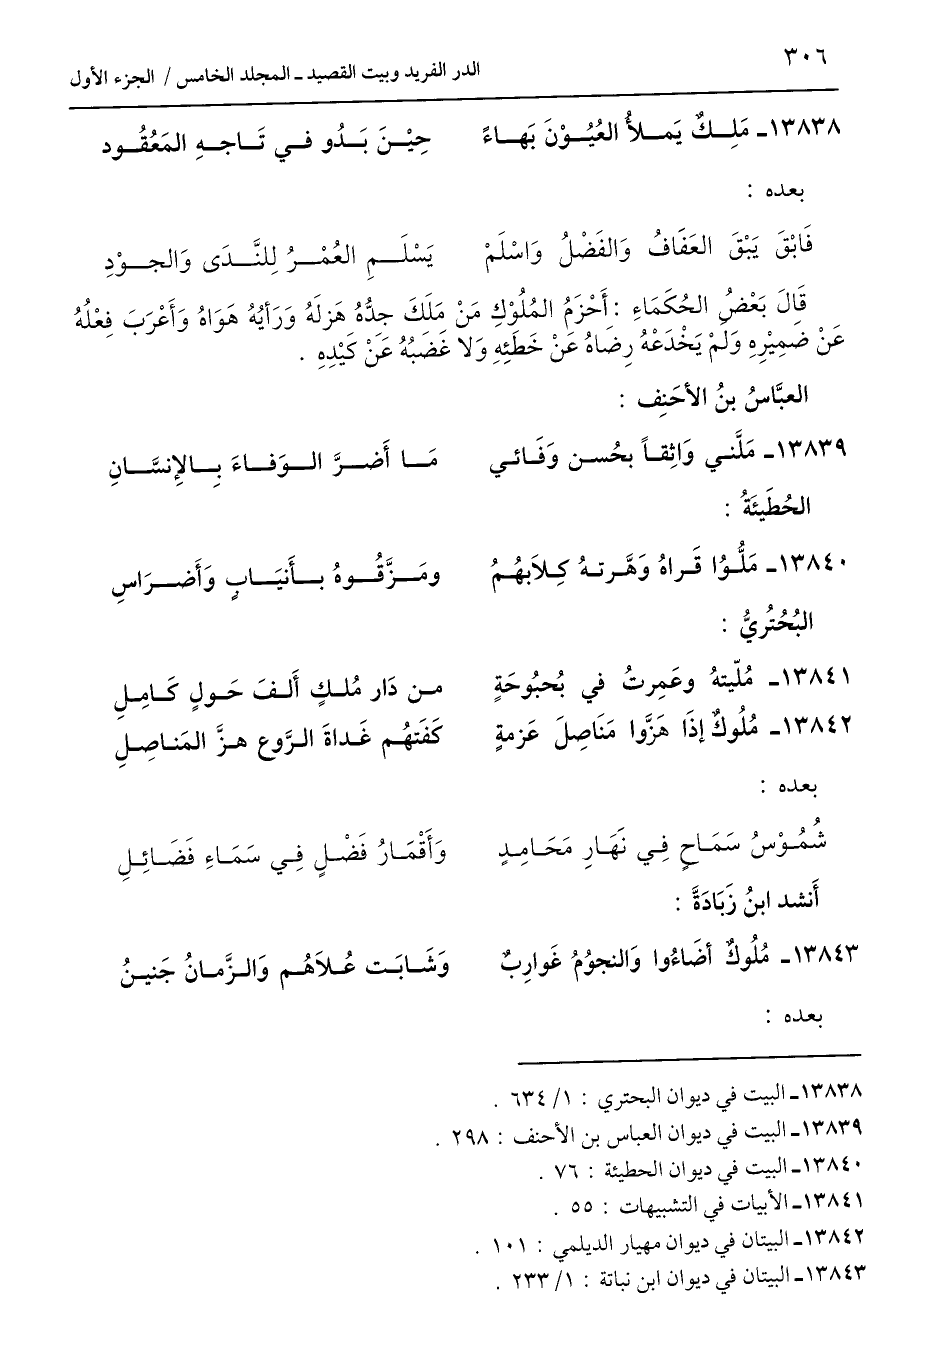 ٣٠٦
الدر الفريد وبيت القصيد ـ المجلد الخامس / الجزء الأول
١٣٨٣٨ـ مَلِـكٌ يَمـلأُ العُيُـوْنَ بَهـاءً حِيْـنَ بَـدُو فـي تَـاجـهِ المَعْقُـود
بعده :
فَابْقَ يَبْقَ العَفَافُ وَالفَضْلُ وَاسْلَمْ يَسْلَـمِ العُمْـرُ لِلنَّـدَى وَالجـوْدِ
قَالَ بَعْضُ الحُكَمَاءِ : أَحْزَمُ المُلُوْكِ مَنْ مَلَكَ جدُّهُ هَزلَهُ وَرَأيُهُ هَوَاهُ وَأَعْرَبَ فِعْلُهُ
عَنْ ضمِيْرِهِ وَلَمْ يَخْدَعْهُ رِضَاهُ عَنْ خَطَئِهِ وَلا غَضبُهُ عَنْ كَيْدِهِ .
العبَّاسُ بنُ الأحَنِف :
١٣٨٣٩ـ مَلَّنـي وَاثِقـاً بحُسـن وَفَـائـي مَـا أَضـرَّ الـوَفـاءَ بِـالإنسَـانِ
الحُطَيئَةُ :
١٣٨٤٠ـ مَلُّـوُا قَـراهُ وَهَّـرتـهُ كِـلاَبهُـمُ ومَـزَّقُـوهُ بـأَنيَـابٍ وَأَضـرَاسِ
البُحُتُريُّ :
١٣٨٤١ـ مُلّيتهُ وعَمِرتُ في بُحبُوحَةٍ مـن دَار مُلـكٍ أَلـفَ حَـولٍ كَـامِـلِ
١٣٨٤٢ـ مُلُوكٌ إذَا هَزَّوا مَنَاصِلَ عَزمةٍ كَفَتهُـم غَـداةَ الـرَّوع هـزَّ المَنـاصِـلِ
بعده :
شُمُـوْسُ سَمَـاحٍ فِـي نَهَـارِ مَحَـامِـدٍ وَأَقْمَـارُ فَضْـلٍ فِـي سَمَـاءِ فَضَـائِـلِ
أَنشد ابنُ زَبَادَةَّ :
١٣٨٤٣ـ مُلُوكٌ أضَاءُوا وَالنجوُمُ غَواربٌ وَشَـابَـت عُـلاَهُـم وَالـزَّمـانُ جَنيـنُ
بعده :
١٣٨٣٨ـ البيت في ديوان البحتري : ١/ ٦٣٤ .
١٣٨٣٩ـ البيت في ديوان العباس بن الأحنف : ٢٩٨ .
١٣٨٤٠ـ البيت في ديوان الحطيئة : ٧٦ .
١٣٨٤١ـ الأبيات في التشبيهات : ٥٥ .
١٣٨٤٢ـ البيتان في ديوان مهيار الديلمي : ١٠١ .
١٣٨٤٣ـ البيتان في ديوان ابن نباتة : ١/ ٢٣٣ .